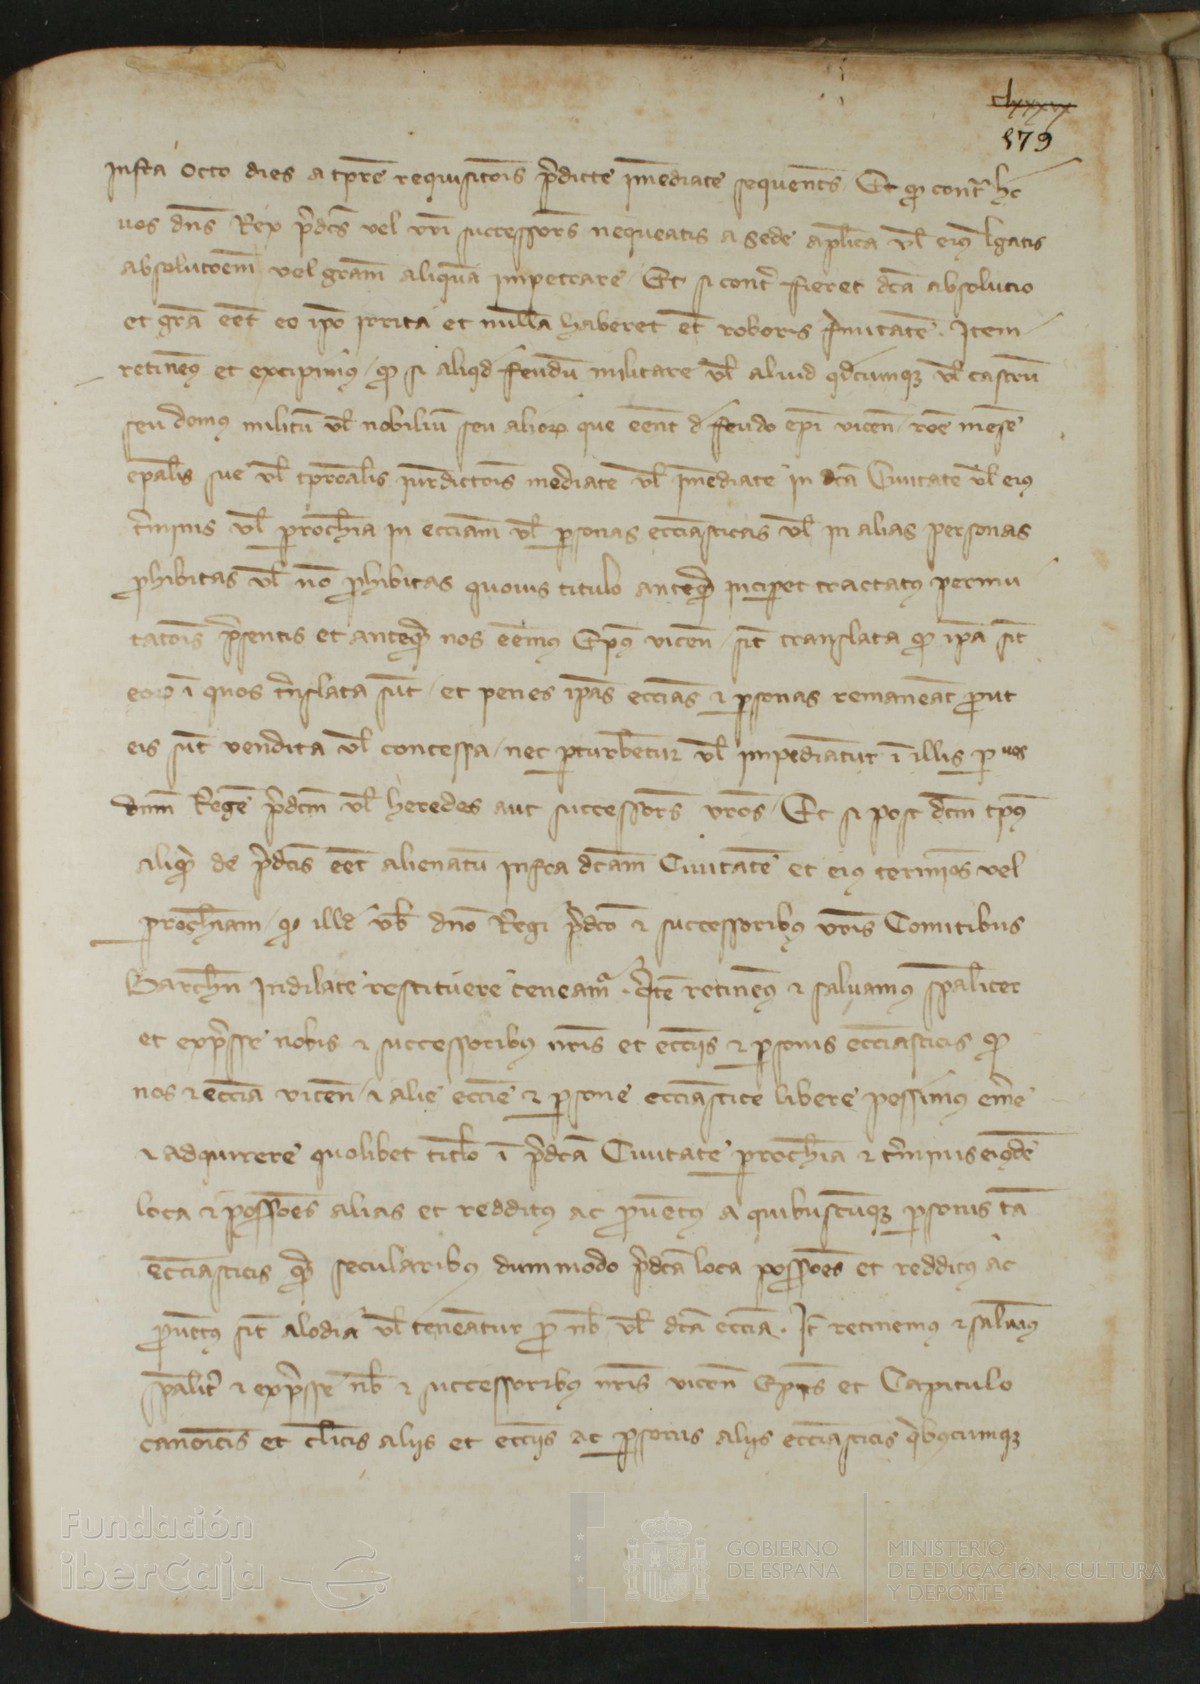 clxxxix
179
Infra octo dies a tpre requisitois p̃dicte im̃ediate sequent̃s Et q̃ contr̃ hc
vos dñs Rex p̃dc̃s vel vr̃i successor̃s nequeatis a sede aplica vl̃ eiꝰ lgatis
absolutoem̃ vel gram̃ aliquã impetrare Et si contr̃ fieret dc̃a absolucio
et gr̃a eẽt eo ip̃o irrita et nulla haberet et roboris firmitatẽ. Item
retinem̃ꝰ et excipimꝰ q̃ si aliqd feudũ militare vl̃ aliud qdcumqꝫ vl̃ castrũ
seu domꝰ militũ vl̃ nobiliũ seu alioꝝ que eẽnt d feudo ep̃i vicen̄ rõe mense
ep̃alis sue vl̃ tpr̃alis iurdictois mediate vl̃ im̃ediate in dc̃a Civitate vl̃ eiꝰ
t̃minis vl̃ ꝑrochia in ecciam̃ vl̃ ꝑsonas ecciasticas vl̃ in alias personas
ꝓhibitas vl̃ nõ ꝓhibitas quovis titulo anteq̃ inciꝑet tractatꝰ permu
tatois p̃sentis et anteq̃ nos eẽmꝰ Ep̃s vicen̄ sĩt translata q̃ ip̃a sĩt
eoꝝ ĩ quos t̃nslata sũt et penes ip̃as eccias̃ ⁊ ꝑsonas remaneãt ꝓut
eis sũt vendita vl̃ concessa nec ꝑturbent̃ vl̃ impediãtur ĩ illis ꝑ vos
dnm̃ Regẽ p̃dcm̃ vl̃ heredes aut successor̃s vr̃os Et si post dcm̃ tpꝰ
aliq̃ de p̃dcis eẽt alienatũ infra dcam̃ Civitatẽ et eiꝰ termios vel
ꝑrochiam q̃ illd vob̃ dno Regi p̃dco ⁊ successoribꝰ vr̃is Comitibus
Barchn̄ Indilate restituere teneam̃ Itẽ retinem̃ꝰ ⁊ salvamꝰ sp̃aliter
et exp̃sse nobis ⁊ successoribꝰ nr̃is et ecciis ⁊ ꝑsonis ecciasticis q̃
nos ⁊ eccia vicen̄ ⁊ alie eccie ⁊ ꝑsone ecciastice libere possimꝰ em̃e
⁊ adquirere quolibet titlo ĩ p̃dca Civitate ꝑrochia ⁊ t̃minis eiꝰdẽ
loca ⁊ possoes alias et redditꝰ ac ꝓventꝰ a quibuscũqꝫ ꝑsonis tã
ecciasticis q̃ secularibꝰ dummodo p̃dca loca possoes et redditꝰ ac
ꝓventꝰ sĩt alodia vl̃ teneãtur ꝓ nb̃ vl̃ dc̃a eccia. It̃ retinemꝰ ⁊ salvamꝰ
sp̃alit̃ ⁊ exp̃sse nb̃ ⁊ successoribꝰ nr̃is vicen̄ Ep̃is et Capitulo
canoicis et clicis aliis et ecciis ac ꝑsonis aliis ecciasticis q̃bꝰcumqꝫ
Fundación
iberCaja
GOBIERNO
DE ESPAÑA
MINISTERIO
DE EDUCACIÓN, CULTURA
Y DEPORTE